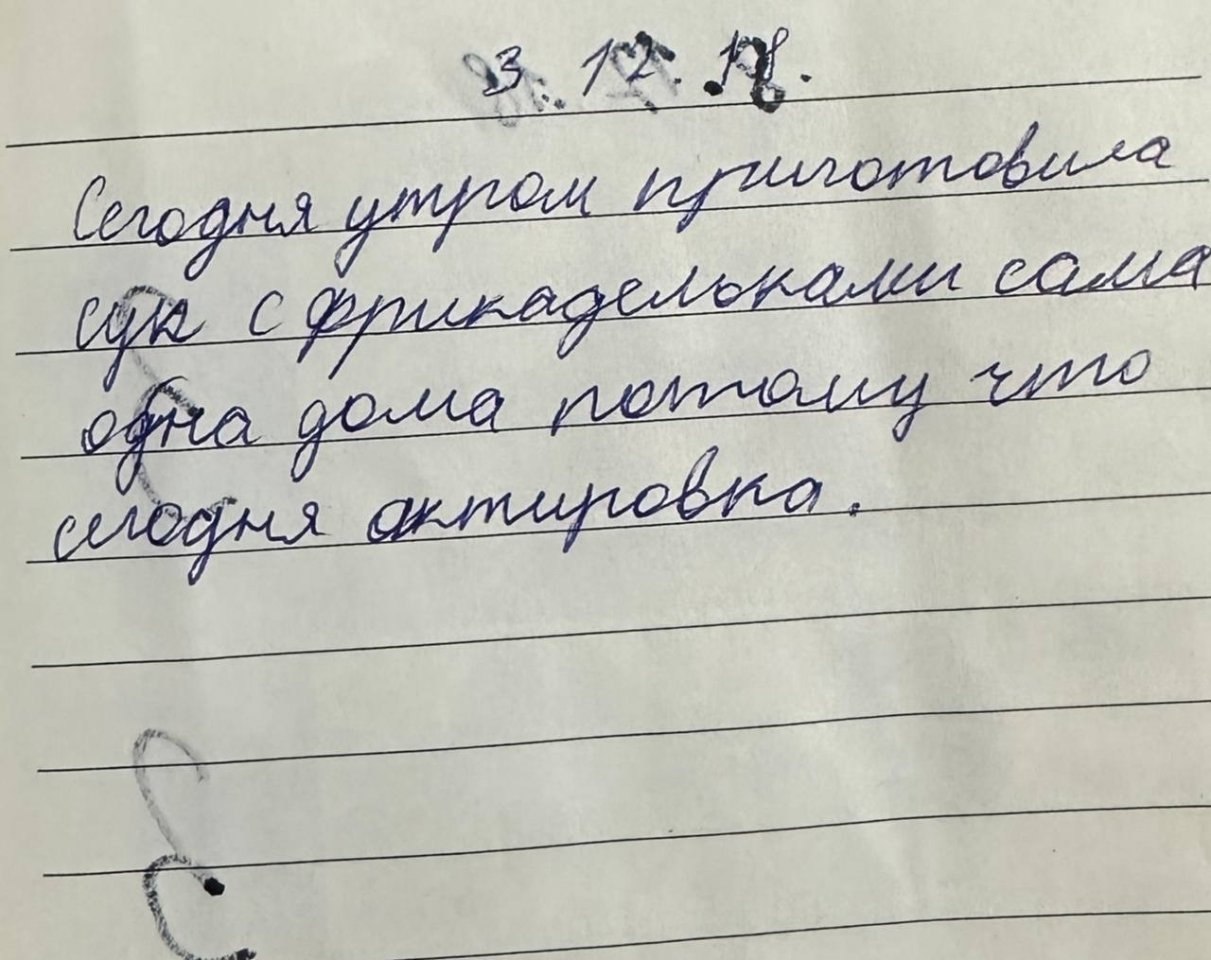 3. 12. 18.
Сегодня утром приготовила
сук с фрикадельками сама
одна дома потому что
сегодня актировка.